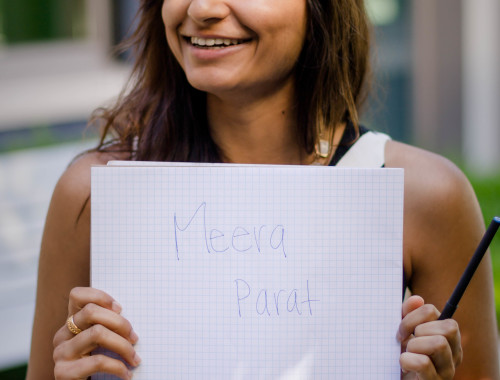 Meera
Parat